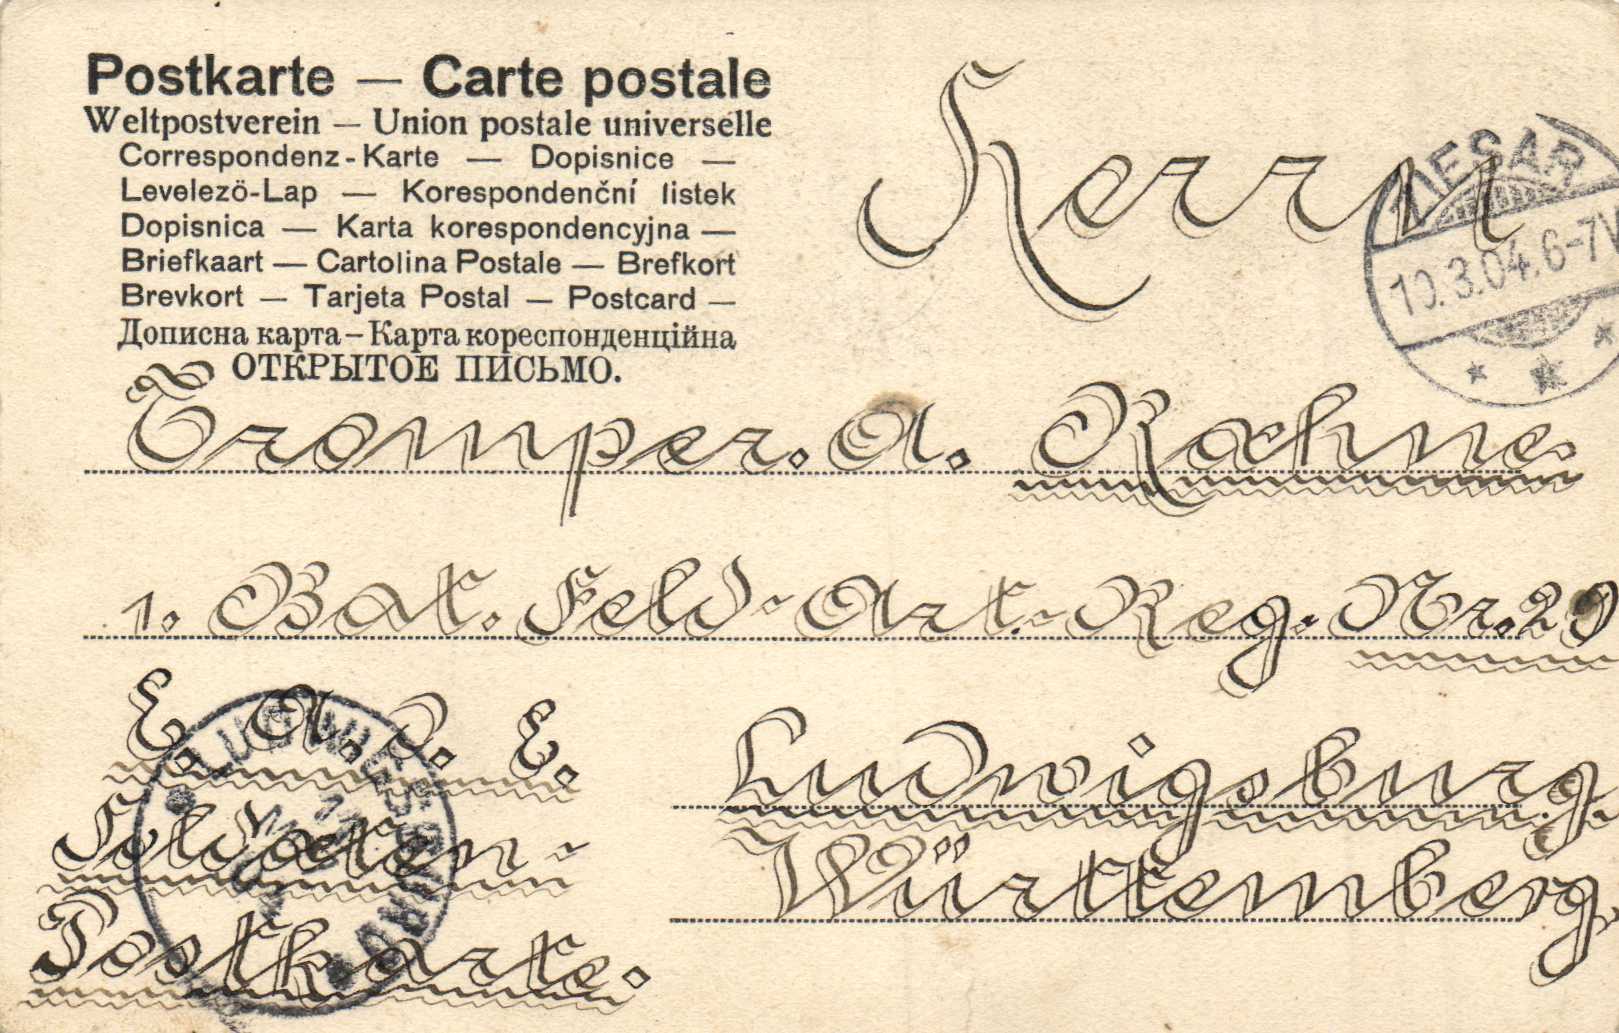 Postkarte — Carte postale
Weltpostverein — Union postale universelle
Correspondenz-Karte — Dopisnice —
Levelezö-Lap — Korespondenční listek
Dopisnica — Karta korespondencyjna —
Briefkaart — Cartolina Postale — Brefkort
Brevkort — Tarjeta Postal — Postcard —
Дописна карта – Карта кореспонденційна
ОТКРЫТОЕ ПИСЬМО.
Herrn
ZIESAR
10.3.04. 6-7V
Tromper. A. Raehne.
1. Bat. Feld-Art.-Reg. Nr. 29
E. A. D. E.
Soldaten-
Postkarte.
LUDWIGSBURG
Ludwigsburg.
Württemberg.